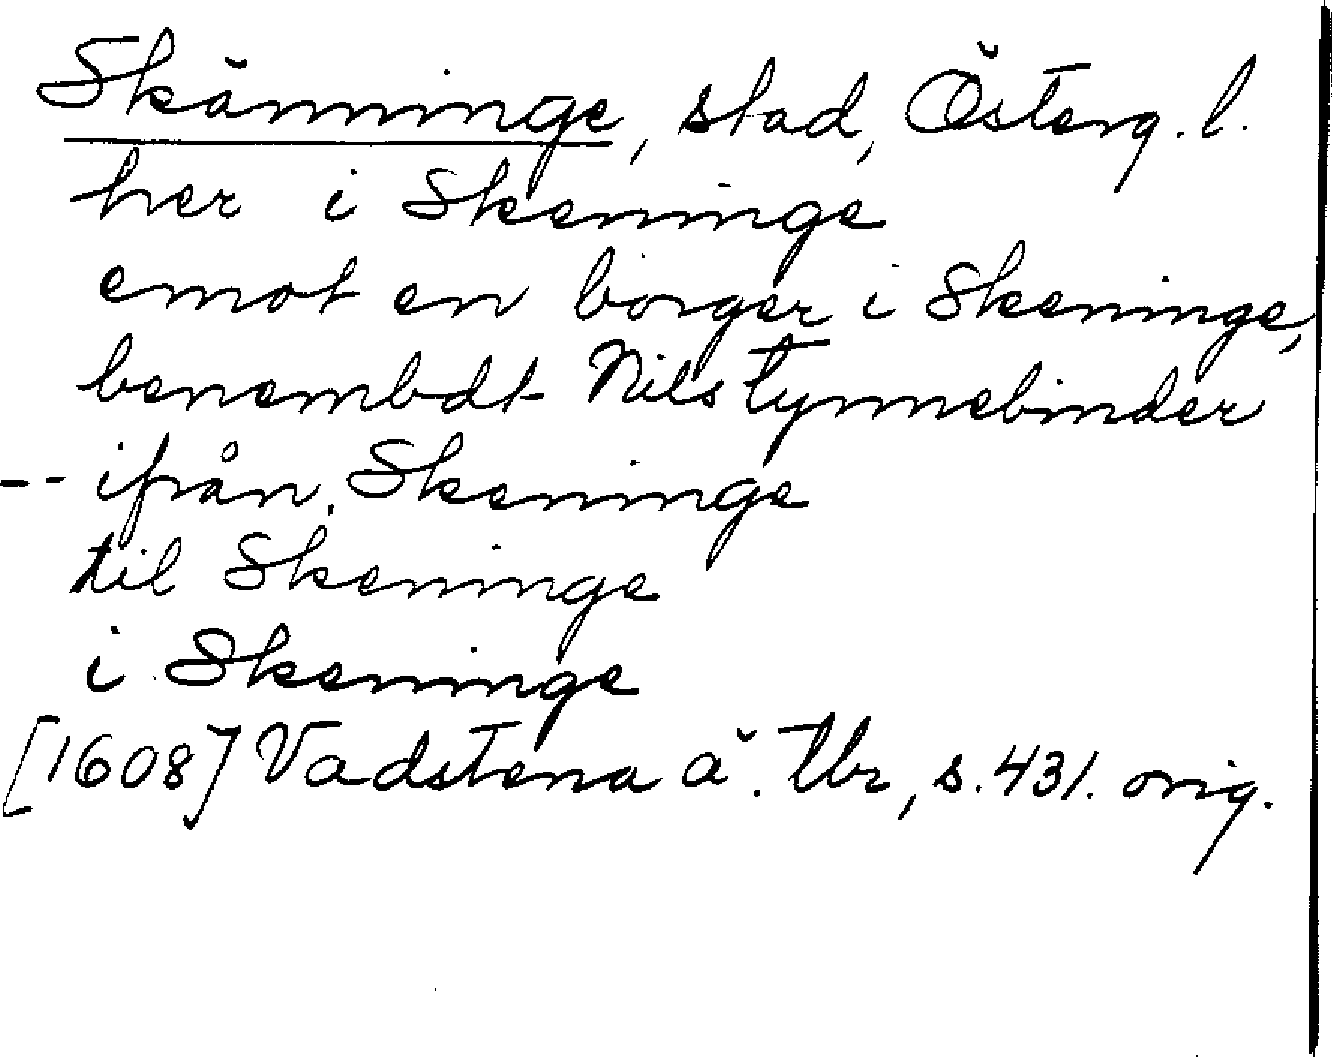 Skänninge, stad, Österg. l.
her i Skeninge
emot en borger i Skeninge,
benembdt Nils tynnebinder
-- ifrån Skeninge
til Skeninge
i Skeninge
[1608] Vadstena ä. tbr, s. 431. orig.